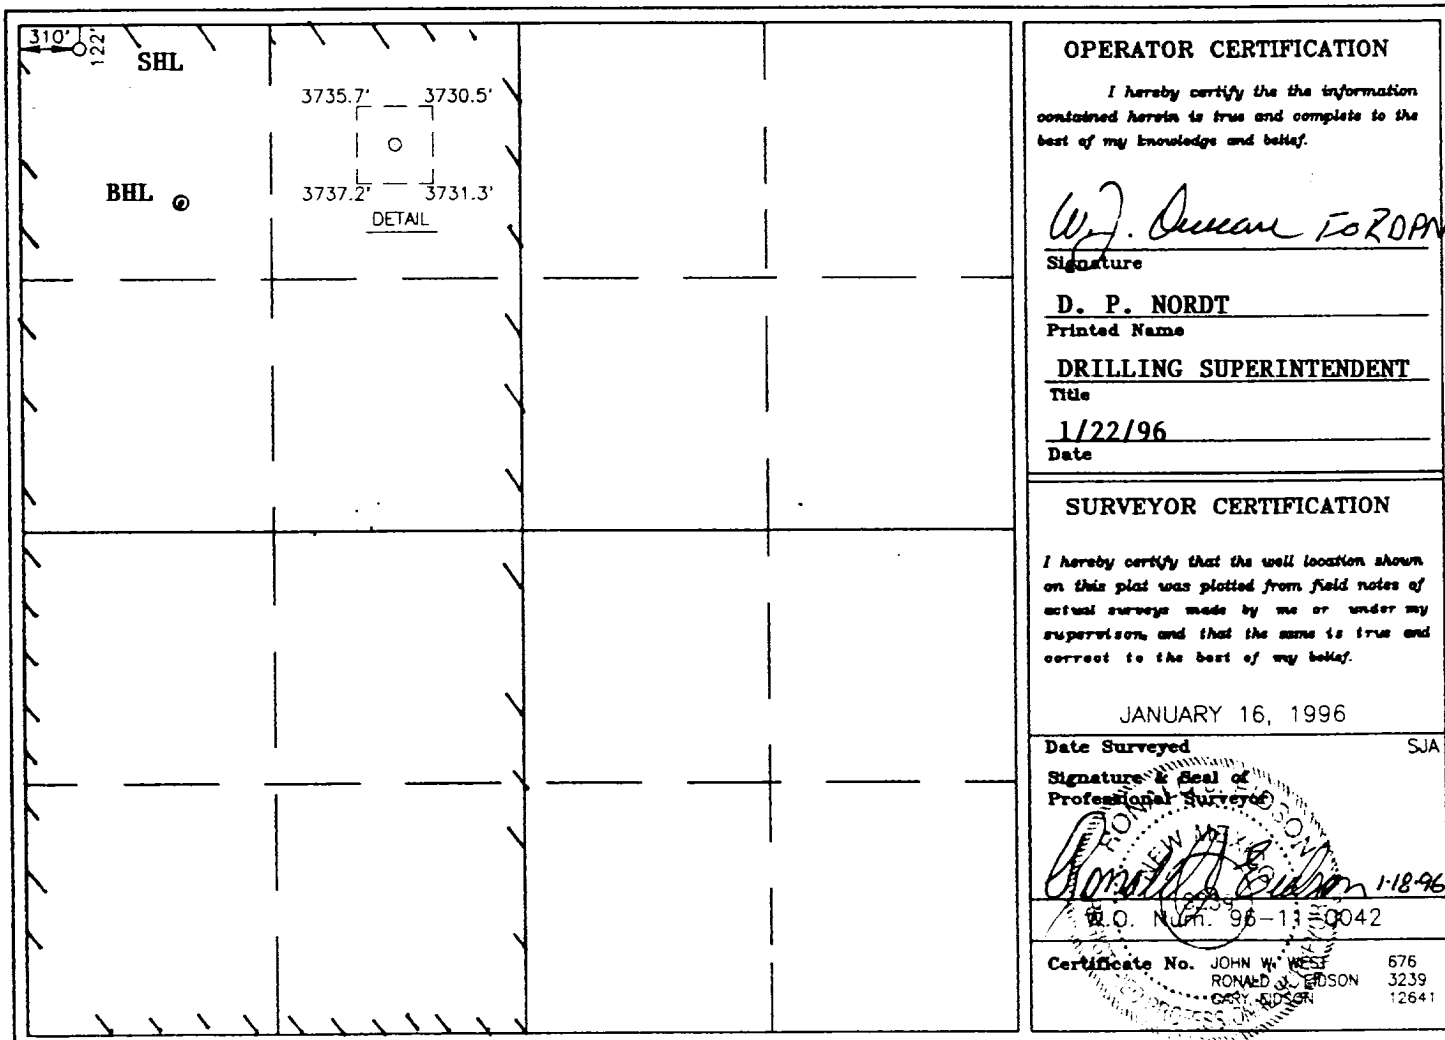 310'
122'
SHL
3735.7' 3730.5'
BHL
3737.2' 3731.3'
DETAIL
OPERATOR CERTIFICATION
I hereby certify the the information
contained herein is true and complete to the
best of my knowledge and belief.
W.J. Duncan FOR DPN
Signature
D. P. NORDT
Printed Name
DRILLING SUPERINTENDENT
Title
1/22/96
Date
SURVEYOR CERTIFICATION
I hereby certify that the well location shown
on this plat was plotted from field notes of
actual surveys made by me or under my
supervison, and that the same is true and
correct to the best of my belief.
JANUARY 16, 1996
Date Surveyed SJA
Signature & Seal of
Professional Surveyor
NEW MEXICO
3239
Ronald J Eidson 1-18-96
W.O. Num. 96-11-0042
Certificate No. JOHN W. WEST 676
RONALD J. EIDSON 3239
GARY EIDSON 12641